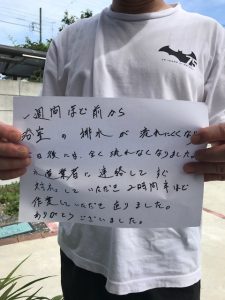 一週間ほど前から
浴室の排水が流れにくくなり
日後には、全く流れなくなりました。
水道業者に連絡してすぐ
対応していただき2時間半ほど
作業していただき直りました。
ありがとうございました。